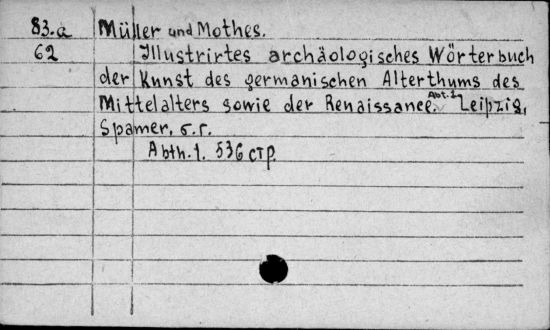 83.a Müller und Mothes.
62 Illustrirtes archäologisches Wörterbuch
der Kunst des germanischen Alterthums des
Mittelalters sowie der Renaissance. Abt. 1. Leipzig,
Spamer, б.г.
Abth. 1. 536 стр.